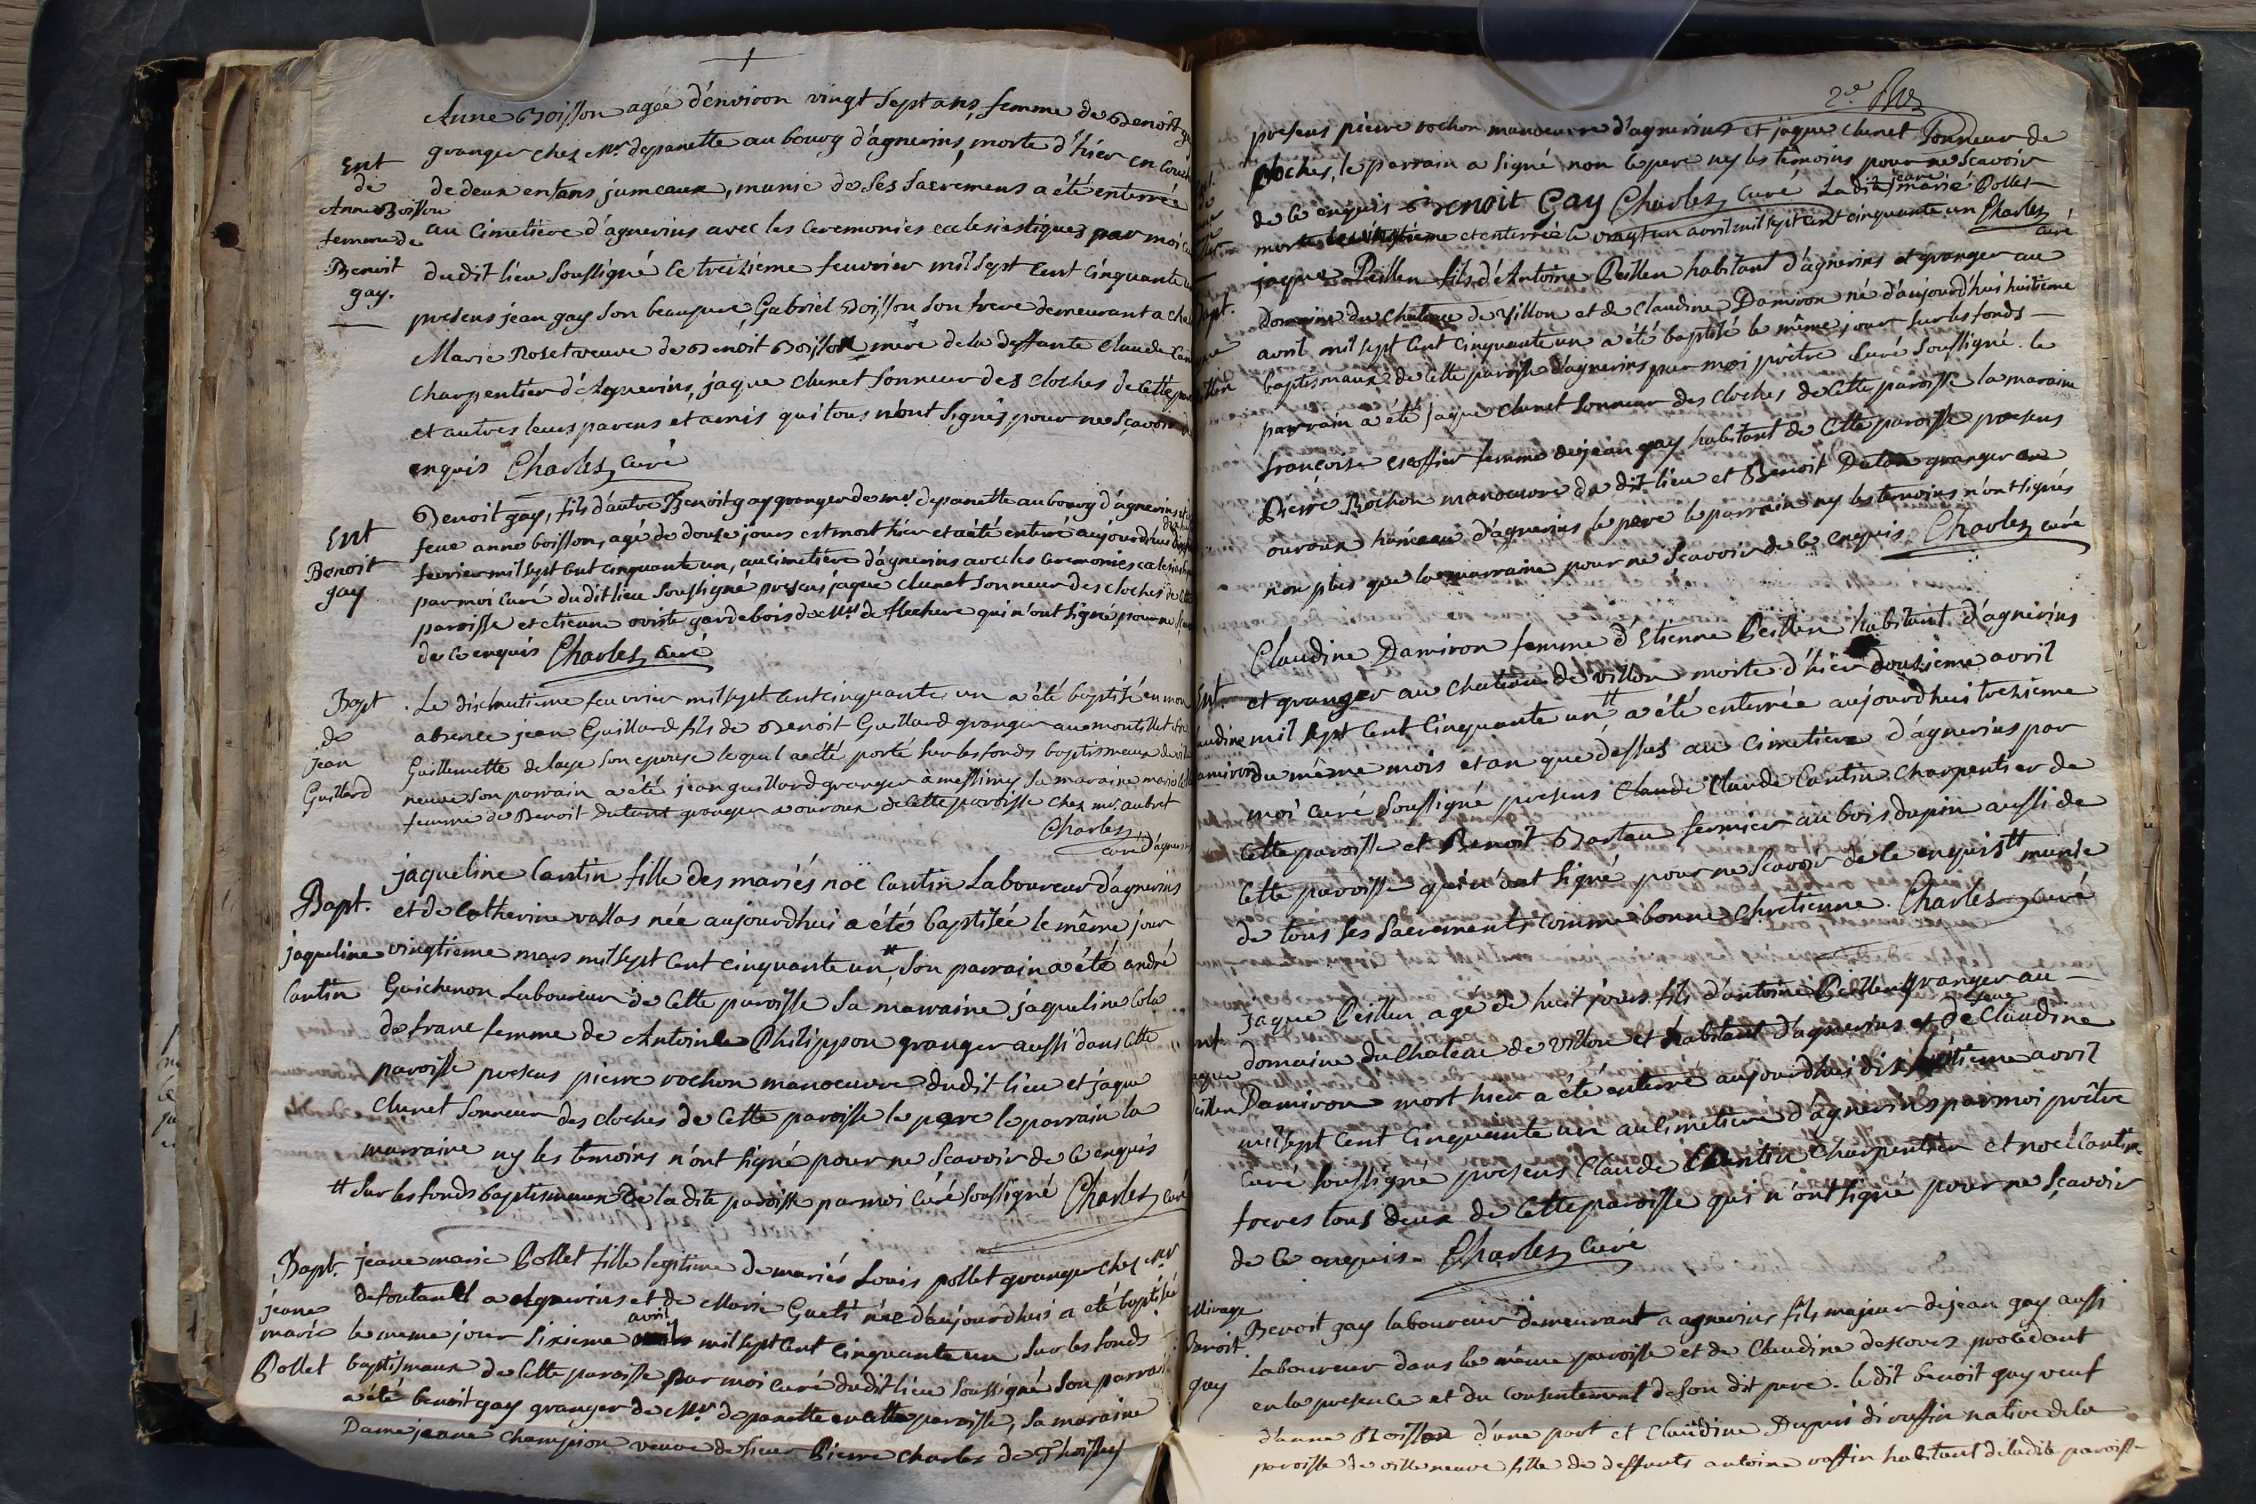 Anne Boisson agée d'environ vingt sept ans, femme de Benoit
granger chez Mr. depanette au bourg d'agnerins, morte d'hier en couche
de deux enfans jumeaux, munie de ses sacremens a été enterrée
au cimetiere d'agnerins avec les ceremonies eclesiastiques par moi
dudit lieu soussigné le treizieme feuvrier mil sept cent cinquante
presens jean gay son beaupere, Gabriel Boisson son frere demeurant a
Marie Roset veuve de Benoit Boisson mere de la deffunte Claude
charpentier d'Agnerins, jaque clunet sonneur des cloches de cette
et autres leurs parens et amis qui tous n'ont signés pour ne scavoir
enquis Charles curé
Ent
de
Anne Boisson
femme de
Benoit
gay.
Benoit gay, fils d'autre Benoit gay granger de mr. depanette au bourg d'agnerins
feue anne boisson, agé de douze jours est mort hier et a été enterré aujourdhuis
fevrier mil sept cent cinquante un, au cimetiere d'agnerins avec les ceremonies
par moi curé dudit lieu soussigné presens jaque clunet sonneur des cloches de
paroisse et etienne oviste gardebois de Mr. de flechere qui n'ont signé pour ne
de ce enquis Charles curé
Ent
Benoit
gay
Le dishuitieme feuvrier mil sept cent cinquante un a été baptisé en mon
absence jean Guillard fils de Benoit Guillard granger au montillet et de
Guillemette delaye son epouse lequel a eté porté sur les fonds baptismaux de
neuve son parrain a été jean guillard granger à messimy sa maraine marie
femme de Benoit dutant granger a ouroux de cette paroisse chez mr. aubret
Charles
curé d'agnerins
Bapt
de
jean
Guillard
jaqueline Cantin fille des mariés noë Cantin Laboureur d'agnerins
et de Catherine vallas née aujourdhui a été baptisée le même jour
vingtieme mars mil sept cent cinquante un, # son parrain a été andré
Guichenon Laboureur de cette paroisse sa marraine jaqueline Cola
defranc femme de Antoine Philippon granger aussi dans cette
paroisse presens pierre rochon manoeuvre dudit lieu et jaque
clunet sonneur des cloches de cette paroisse le pere le parrain la
marraine ny les temoins n'ont signé pour ne scavoir de ce enquis
# sur les fonds baptismaux de la dite paroisse par moi curé soussigné Charles curé
Bapt.
jaqueline
Cantin
jeane marie Pollet fille legitime de mariés Louis pollet granger chez Mr
defontanel a Agnerins et de Marie Gueti née d'aujourdhui a été baptisée
le meme jour sixieme avril mil sept cent cinquante un sur les fonds
baptismaux de cette paroisse par moi curé dudit lieu soussigné son parrain
a été benoit gay granger de Mr. depanette en cette paroisse, sa maraine
Dame jeane Champion veuve de sieur Pierre Charles de Thoissey
Bapt.
jeane
marie
Pollet
presens pierre rochon manoeuvre d'agnerins et jaque clunet sonneur de
cloches, le parrain a signé non le pere ny les temoins pour ne scavoir
de ce enquis Benoit Gay Charles curé La dite jeane marie Pollet
morte le vingtieme et enterrée le vingt un avril mil sept cent cinquante un Charles
curé
jaque Peillen fils d'Antoine Peillen habitant d'agnerins et granger au
domaine du chateau de villon et de Claudine Damiron né d'aujourd'hui huitieme
avril mil sept cent cinquante un a été baptisé le même jour sur les fonds
baptismaux de cette paroisse d'agnerins par moi prêtre curé soussigné. le
parrain a été jaque clunet sonneur des cloches de cette paroisse la maraine
françoise escoffier femme de jean gay habitant de cette paroisse presens
Pierre Rochon manoeuvre du dit lieu et Benoit Dutan granger en
ouroux hameau d'agnerins, le pere le parrain ny les temoins n'ont signés
non plus que la marraine pour ne scavoir de ce enquis. Charles curé
Claudine Damiron femme d'Etienne Peillen habitant d'agnerins
et granger au chateau de villon morte d'hier douzieme avril
mil sept cent cinquante un # a été enterrée aujourdhui treizieme
du même mois et an que dessus au cimetiere d'agnerins par
moi curé soussigné presens Claude Claude Cantin charpentier de
cette paroisse et Benoit Barlau fermier au bois dupin aussi de
cette paroisse qui n'ont signé pour ne scavoir de ce enquis # munie
de tous ses sacrements comme bonne chretienne. Charles curé
Ent
jaque Peillen agé de huit jours fils d'antoine Peillen granger au
domaine du Chateau de villon et habitant d'agnerins et de feue Claudine
Damiron mort hier a été enterré aujourdhui dix huitieme avril
mil sept cent cinquante un au cimetiere d'agnerins par moi prêtre
curé soussigné presens Claude Cantin charpentier et noël Cantin
freres tous deux de cette paroisse qui n'ont signé pour ne sçavoir
de ce enquis. Charles curé
Benoit gay laboureur demeurant a agnerins fils majeur de jean gay aussi
Laboureur dans la même paroisse et de Claudine descours procedant
en la presence et du consentement de son dit pere. le dit benoit gay veuf
d'anne Boisson d'une part et Claudine Dupuis diruffin native de la
paroisse de villeneuve fille de deffunts antoine ruffin habitant de ladite paroisse
Mirage
Benoit
gay